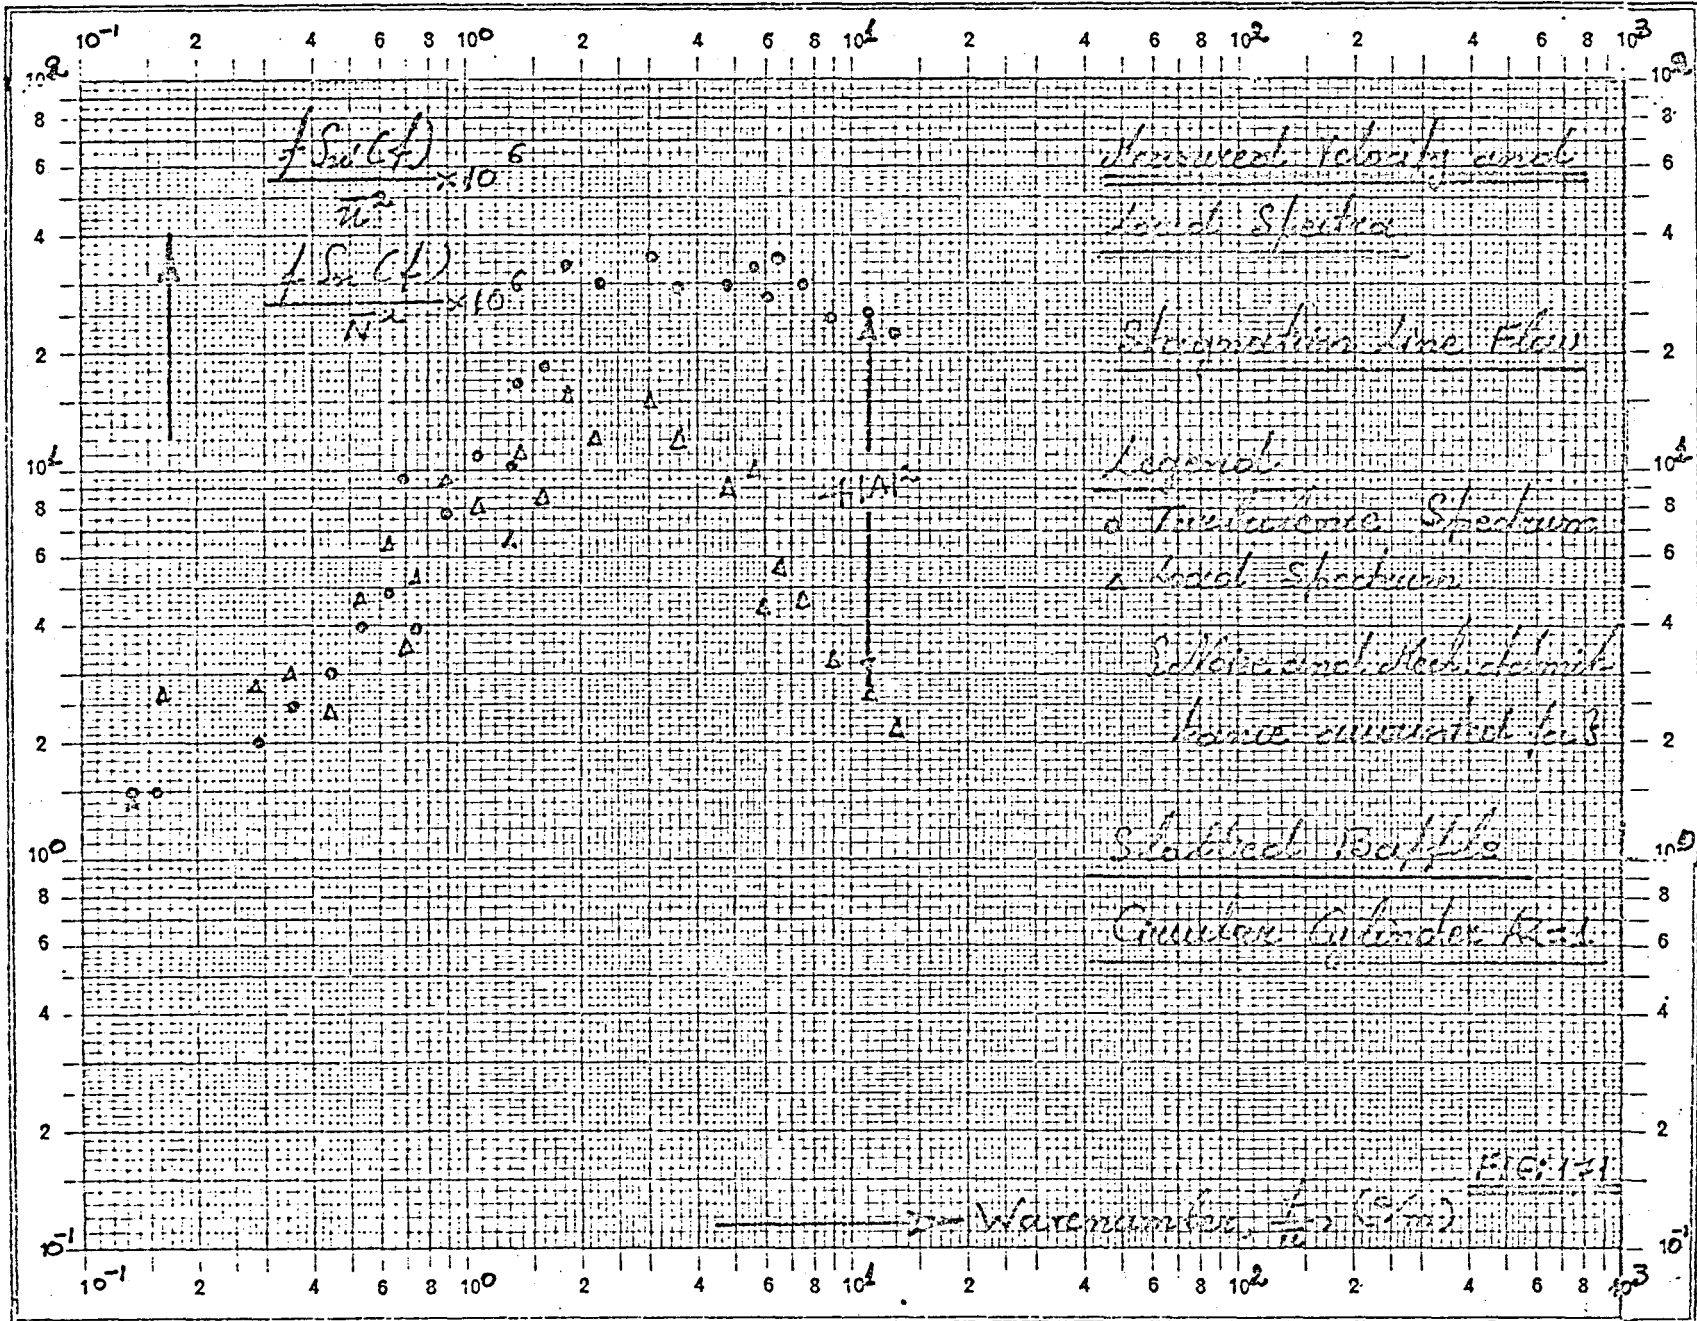 10⁻¹ 2 4 6 8 10⁰ 2 4 6 8 10¹ 2 4 6 8 10² 2 4 6 8 10³
10² 8 6 4 2 10¹ 8 6 4 2 10⁰ 8 6 4 2 10⁻¹
f Su'(f) / ū² ×10⁶
f Su(f) / N̄² ×10⁶
4|A|²
Measured Velocity and
Load Spectra
Stagnation Line Flow
Legend
o Turbulence Spectrum
Δ Load Spectrum
and Mech.
Slatted Baffle
Circular Cylinder
FIG: 171
Wavenumber, (c/m)
10² 8 6 4 2 10¹ 8 6 4 2 10⁰ 8 6 4 2 10¹
10⁻¹ 2 4 6 8 10⁰ 2 4 6 8 10¹ 2 4 6 8 10² 2 4 6 8 10³